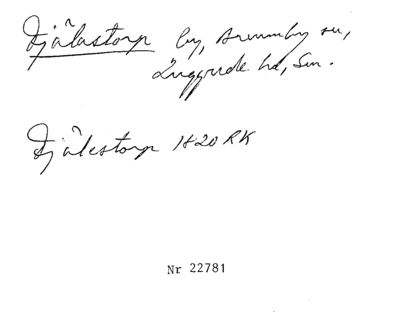 Djälastorp by, Brunnby sn,
Luggude hd, Sm.
Djälestorp 1820 RK
Nr 22781